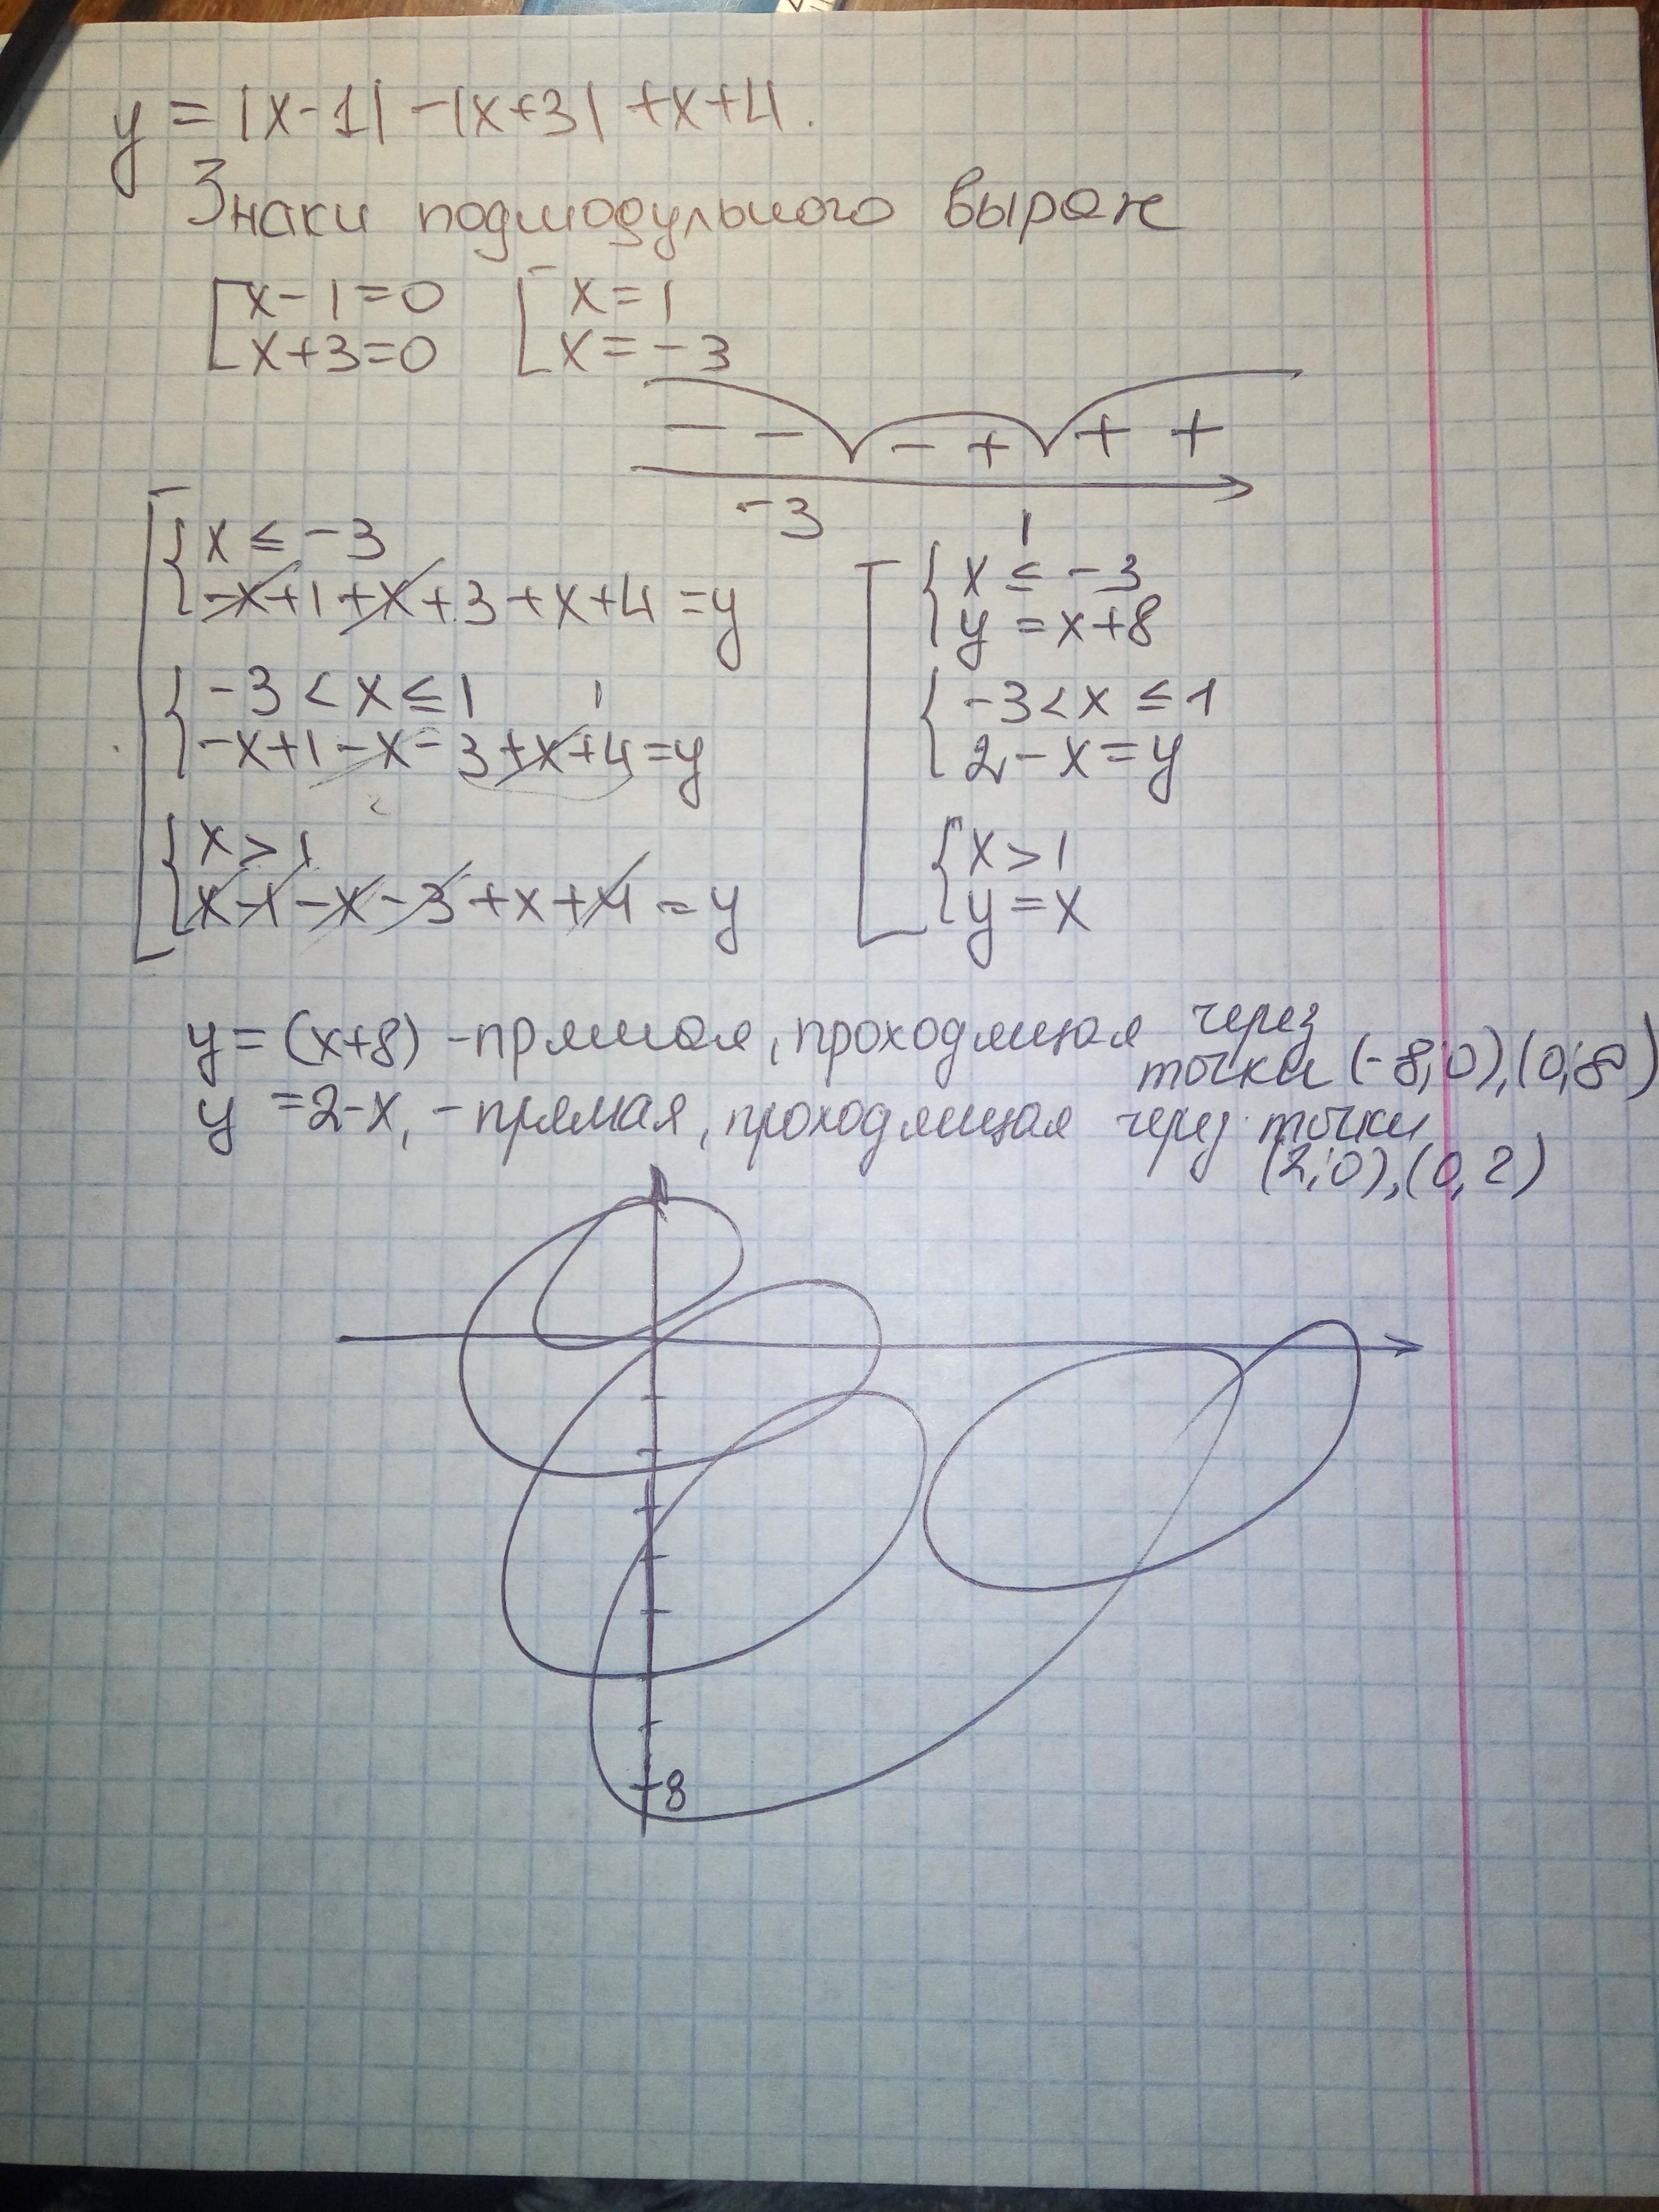 y = |x-1| -|x+3| +x+4.
Знаки подмодульного выраж
x-1=0 x=1
x+3=0 x=-3
- - - + + +
-3 1
x ≤ -3
-x+1+x+3+x+4=y
-3 < x ≤ 1 1
-x+1-x-3+x+4=y
x > 1
x-1-x-3+x+4=y
x ≤ -3
y = x+8
-3 < x ≤ 1
2-x=y
x > 1
y = x
y = (x+8) -прямая, проходящая через
точки (-8;0), (0;8)
y = 2-x, -прямая, проходящая через точки
(2;0), (0,2)
8